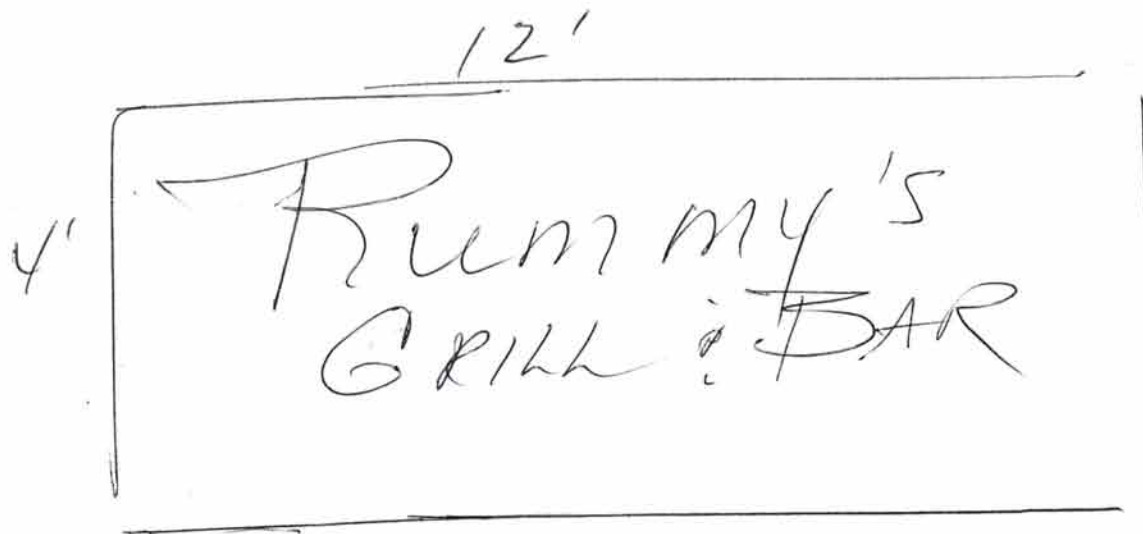 12'
4'
Rummy's
GRILL & BAR